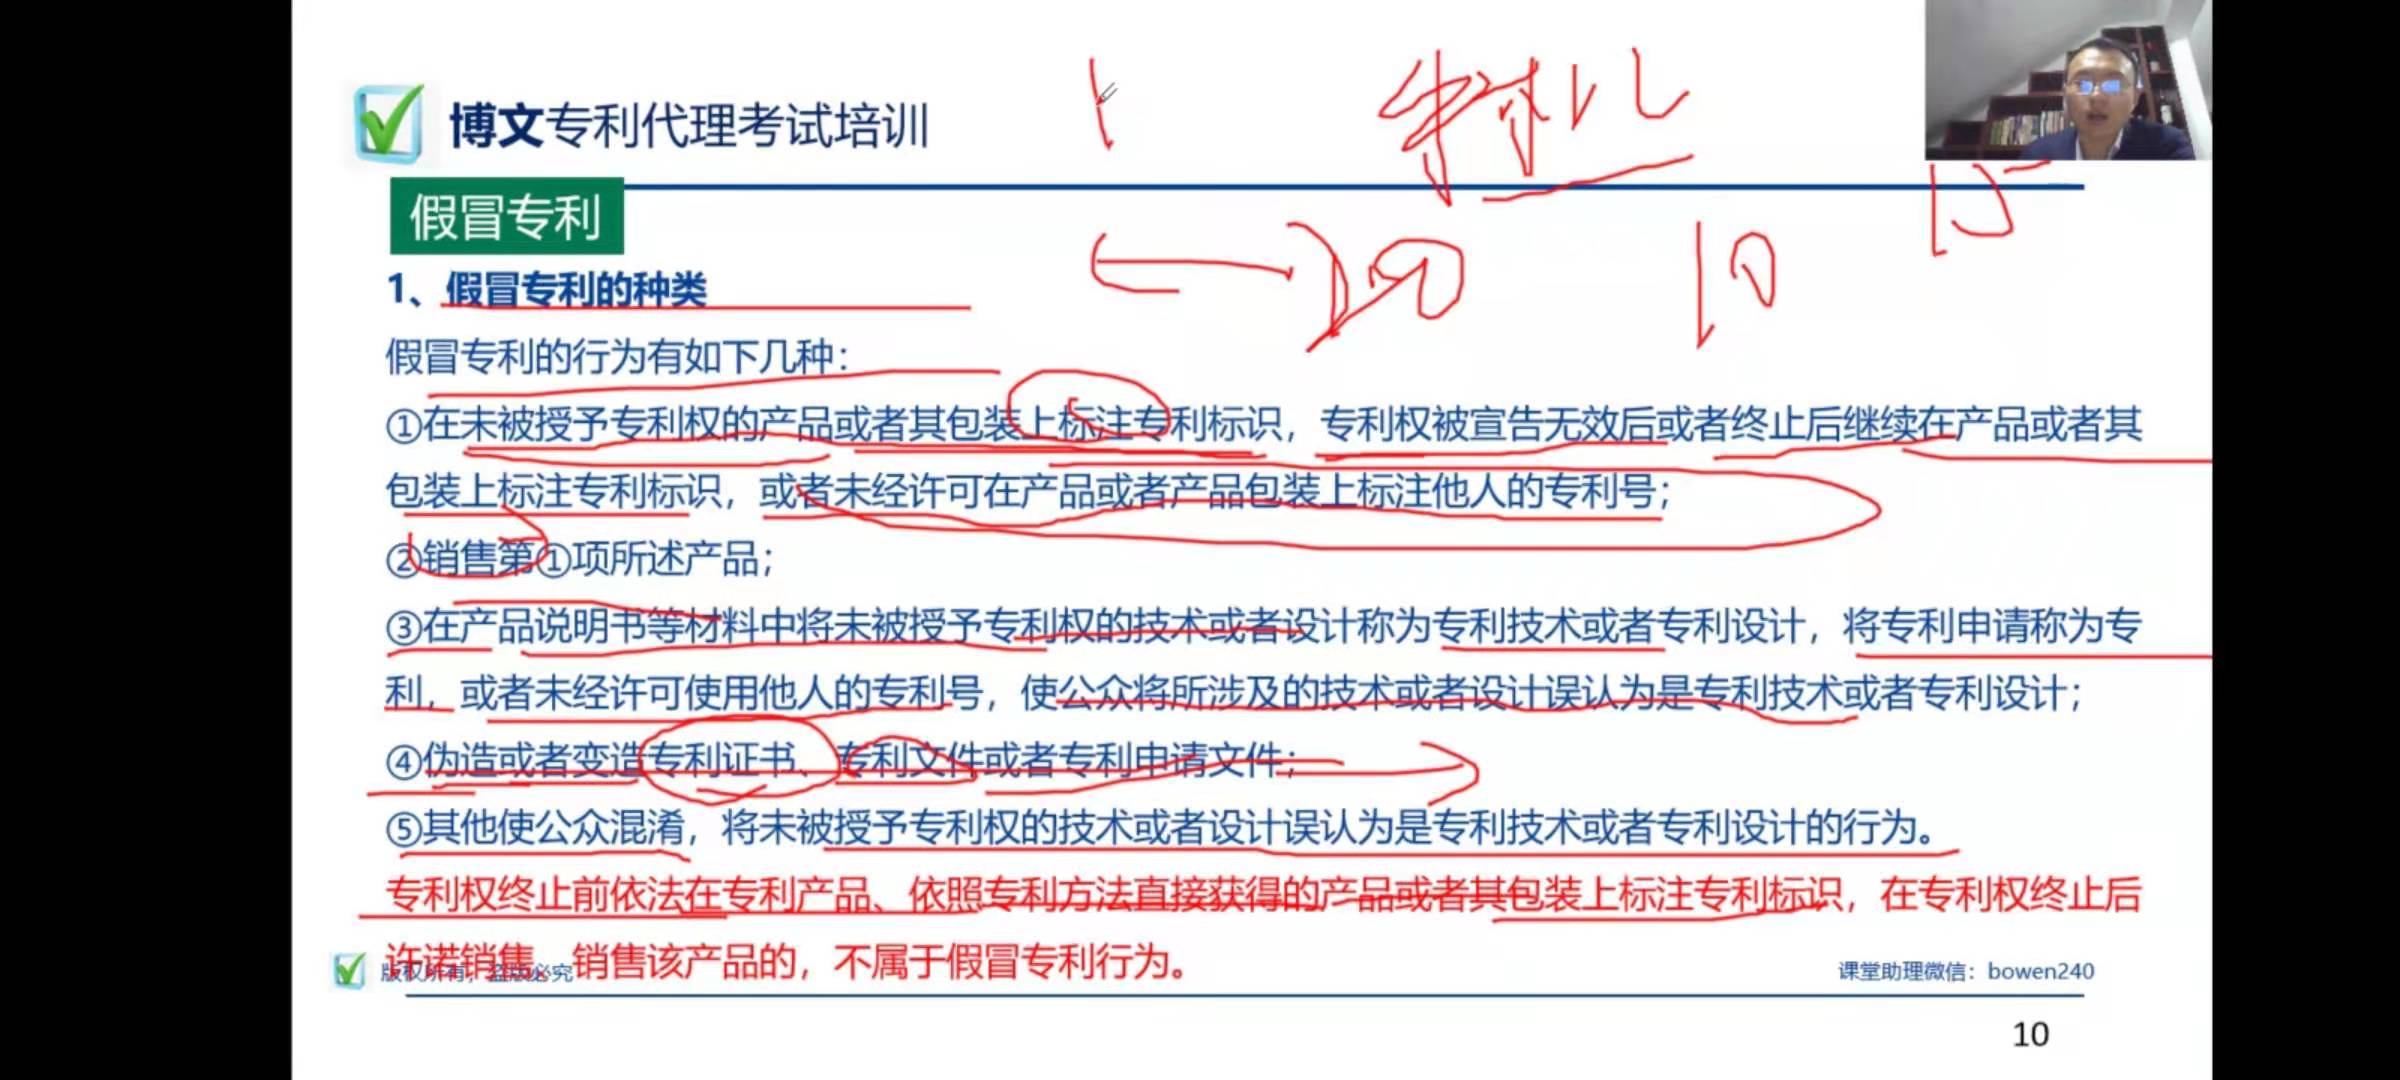 博文专利代理考试培训
专利
15
假冒专利
20
10
1、假冒专利的种类
假冒专利的行为有如下几种：
①在未被授予专利权的产品或者其包装上标注专利标识，专利权被宣告无效后或者终止后继续在产品或者其
包装上标注专利标识，或者未经许可在产品或者产品包装上标注他人的专利号；
②销售第①项所述产品；
③在产品说明书等材料中将未被授予专利权的技术或者设计称为专利技术或者专利设计，将专利申请称为专
利，或者未经许可使用他人的专利号，使公众将所涉及的技术或者设计误认为是专利技术或者专利设计；
④伪造或者变造专利证书、专利文件或者专利申请文件；
⑤其他使公众混淆，将未被授予专利权的技术或者设计误认为是专利技术或者专利设计的行为。
专利权终止前依法在专利产品、依照专利方法直接获得的产品或者其包装上标注专利标识，在专利权终止后
许诺销售、销售该产品的，不属于假冒专利行为。
版权所有，盗版必究
课堂助理微信：bowen240
10